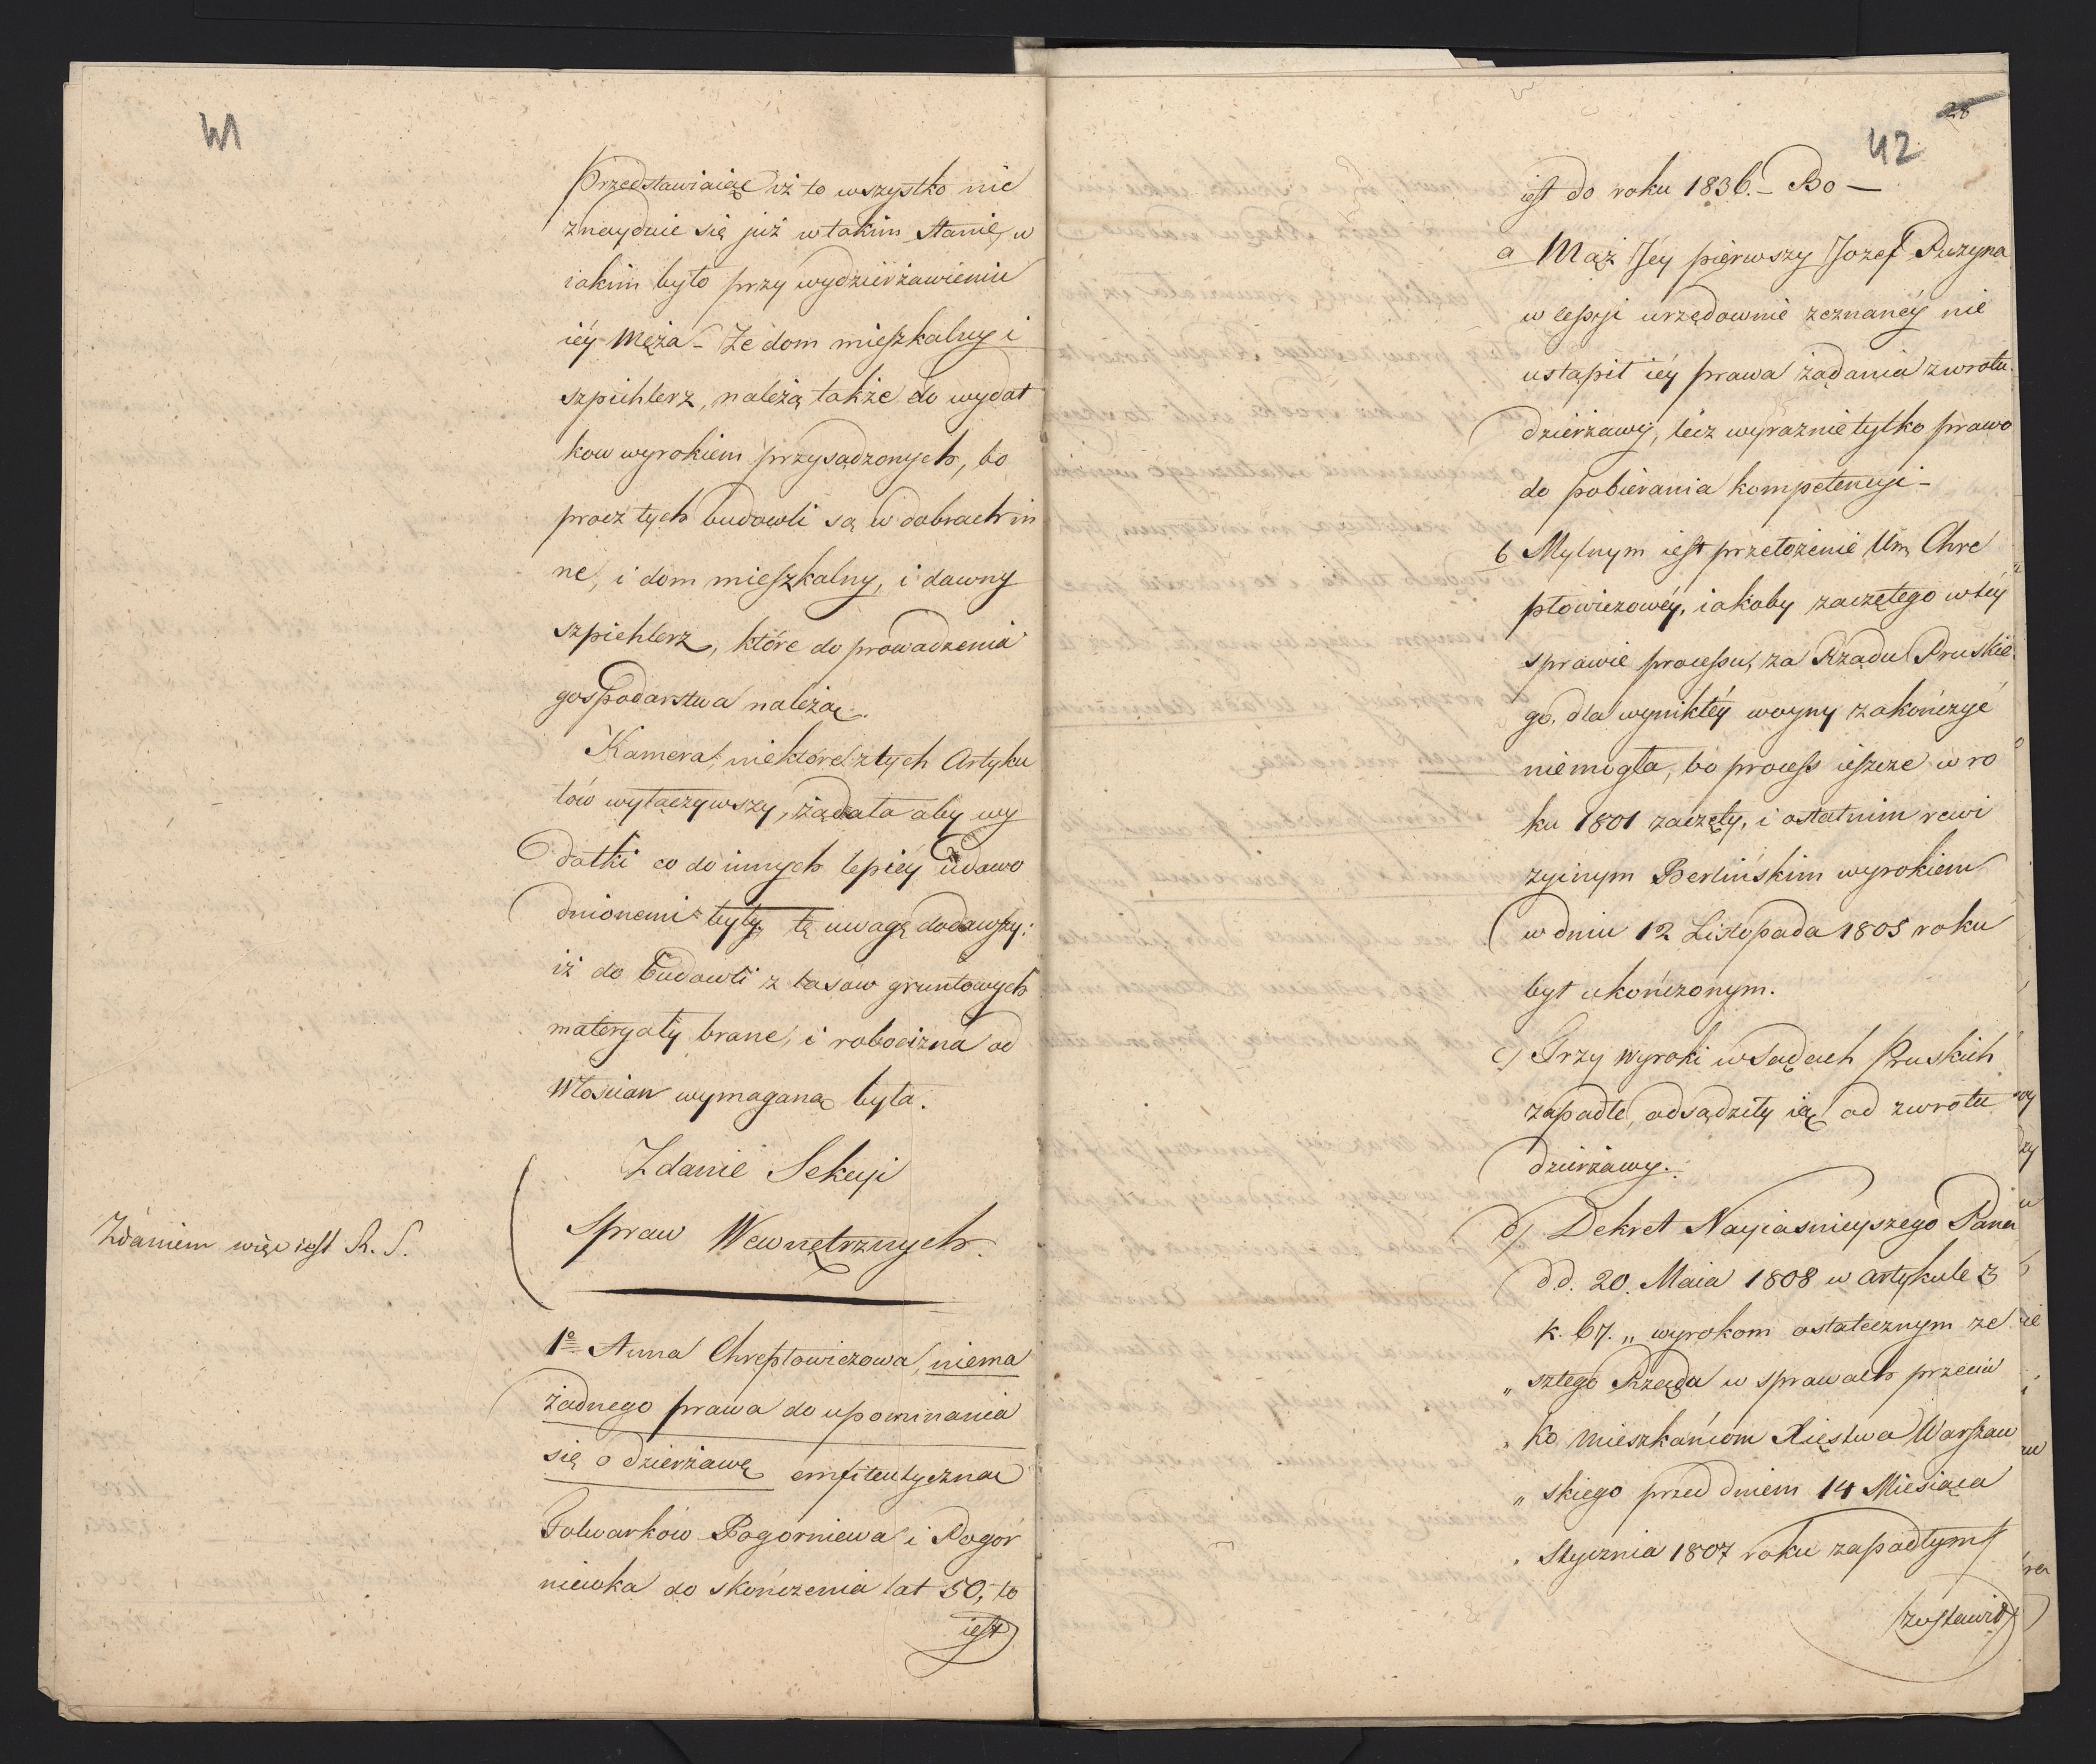 41
Przedstawiaiąc iż to wszystko nie
znayduie się już w takim stanie, w
iakim było przy wydzierżawieniu
iéy Męża – Że dom mieszkalny i
szpichlerz, należą także do wydat
kow wyrokiem przysądzonych, bo
procz tych budowli są w dobrach in
ne, i dom mieszkalny, i dawny
szpichlerz, które do prowadzenia
gospodarstwa należą.
Kamera, niektóre z tych Artyku
łów wyłączywszy, żądała aby wy
datki co do innych lepiéy udowo
dnionemi były, tę uwagę dodawszy:
iż do budowli z lasow gruntowych
materyały brane, i robocizna od
Włościan wymaganą była.
Zdanie Sekcyi
Spraw Wewnętrznych.
Zdaniem więc iest R. S.
1º Anna Chreptowiczowa, niema
żadnego prawa do upominania
się o dzierżawę emfiteutyczną
Folwarków Pogorniewa i Pogor
niewka do skończenia lat 50, to
iest
28
42
iest do roku 1836. – Bo –
a Mąż Jéy pierwszy Jozef Puzyna
w cessyi urzędownie zeznanéy nie
ustąpił iéy prawa żądania zwrotu
dzierżawy, lecz wyraźnie tylko prawo
do pobierania kompetencyi –
b Mylnym iest przełożenie Ur. Chre
ptowiczowéy, iakoby zaczętego w téy
sprawie processu, za Rządu Pruskie
go, dla wynikłéy woyny zakończyć
niemogła, bo process ieszcze w ro
ku 1801 zaczęty, i ostatnim rewi
zyinym Berlińskim wyrokiem
w dniu 12 Listopada 1805 roku
był ukończonym.
c) Trzy wyroki w Sądach Pruskich
zapadłe, odsądziły ią od zwrotu
dzierżawy.
d) Dekret Nayiasnieyszego Pana
dd. 20. Maia 1808 w artykule 3
k. 67. „ wyrokom ostatecznym ze
„ szłego Rządu w sprawach przeciw
„ ko mieszkańcom Xięstwa Warszaw
„ skiego przed dniem 14 Miesiąca
„ Stycznia 1807 roku zapadłym
zostawił